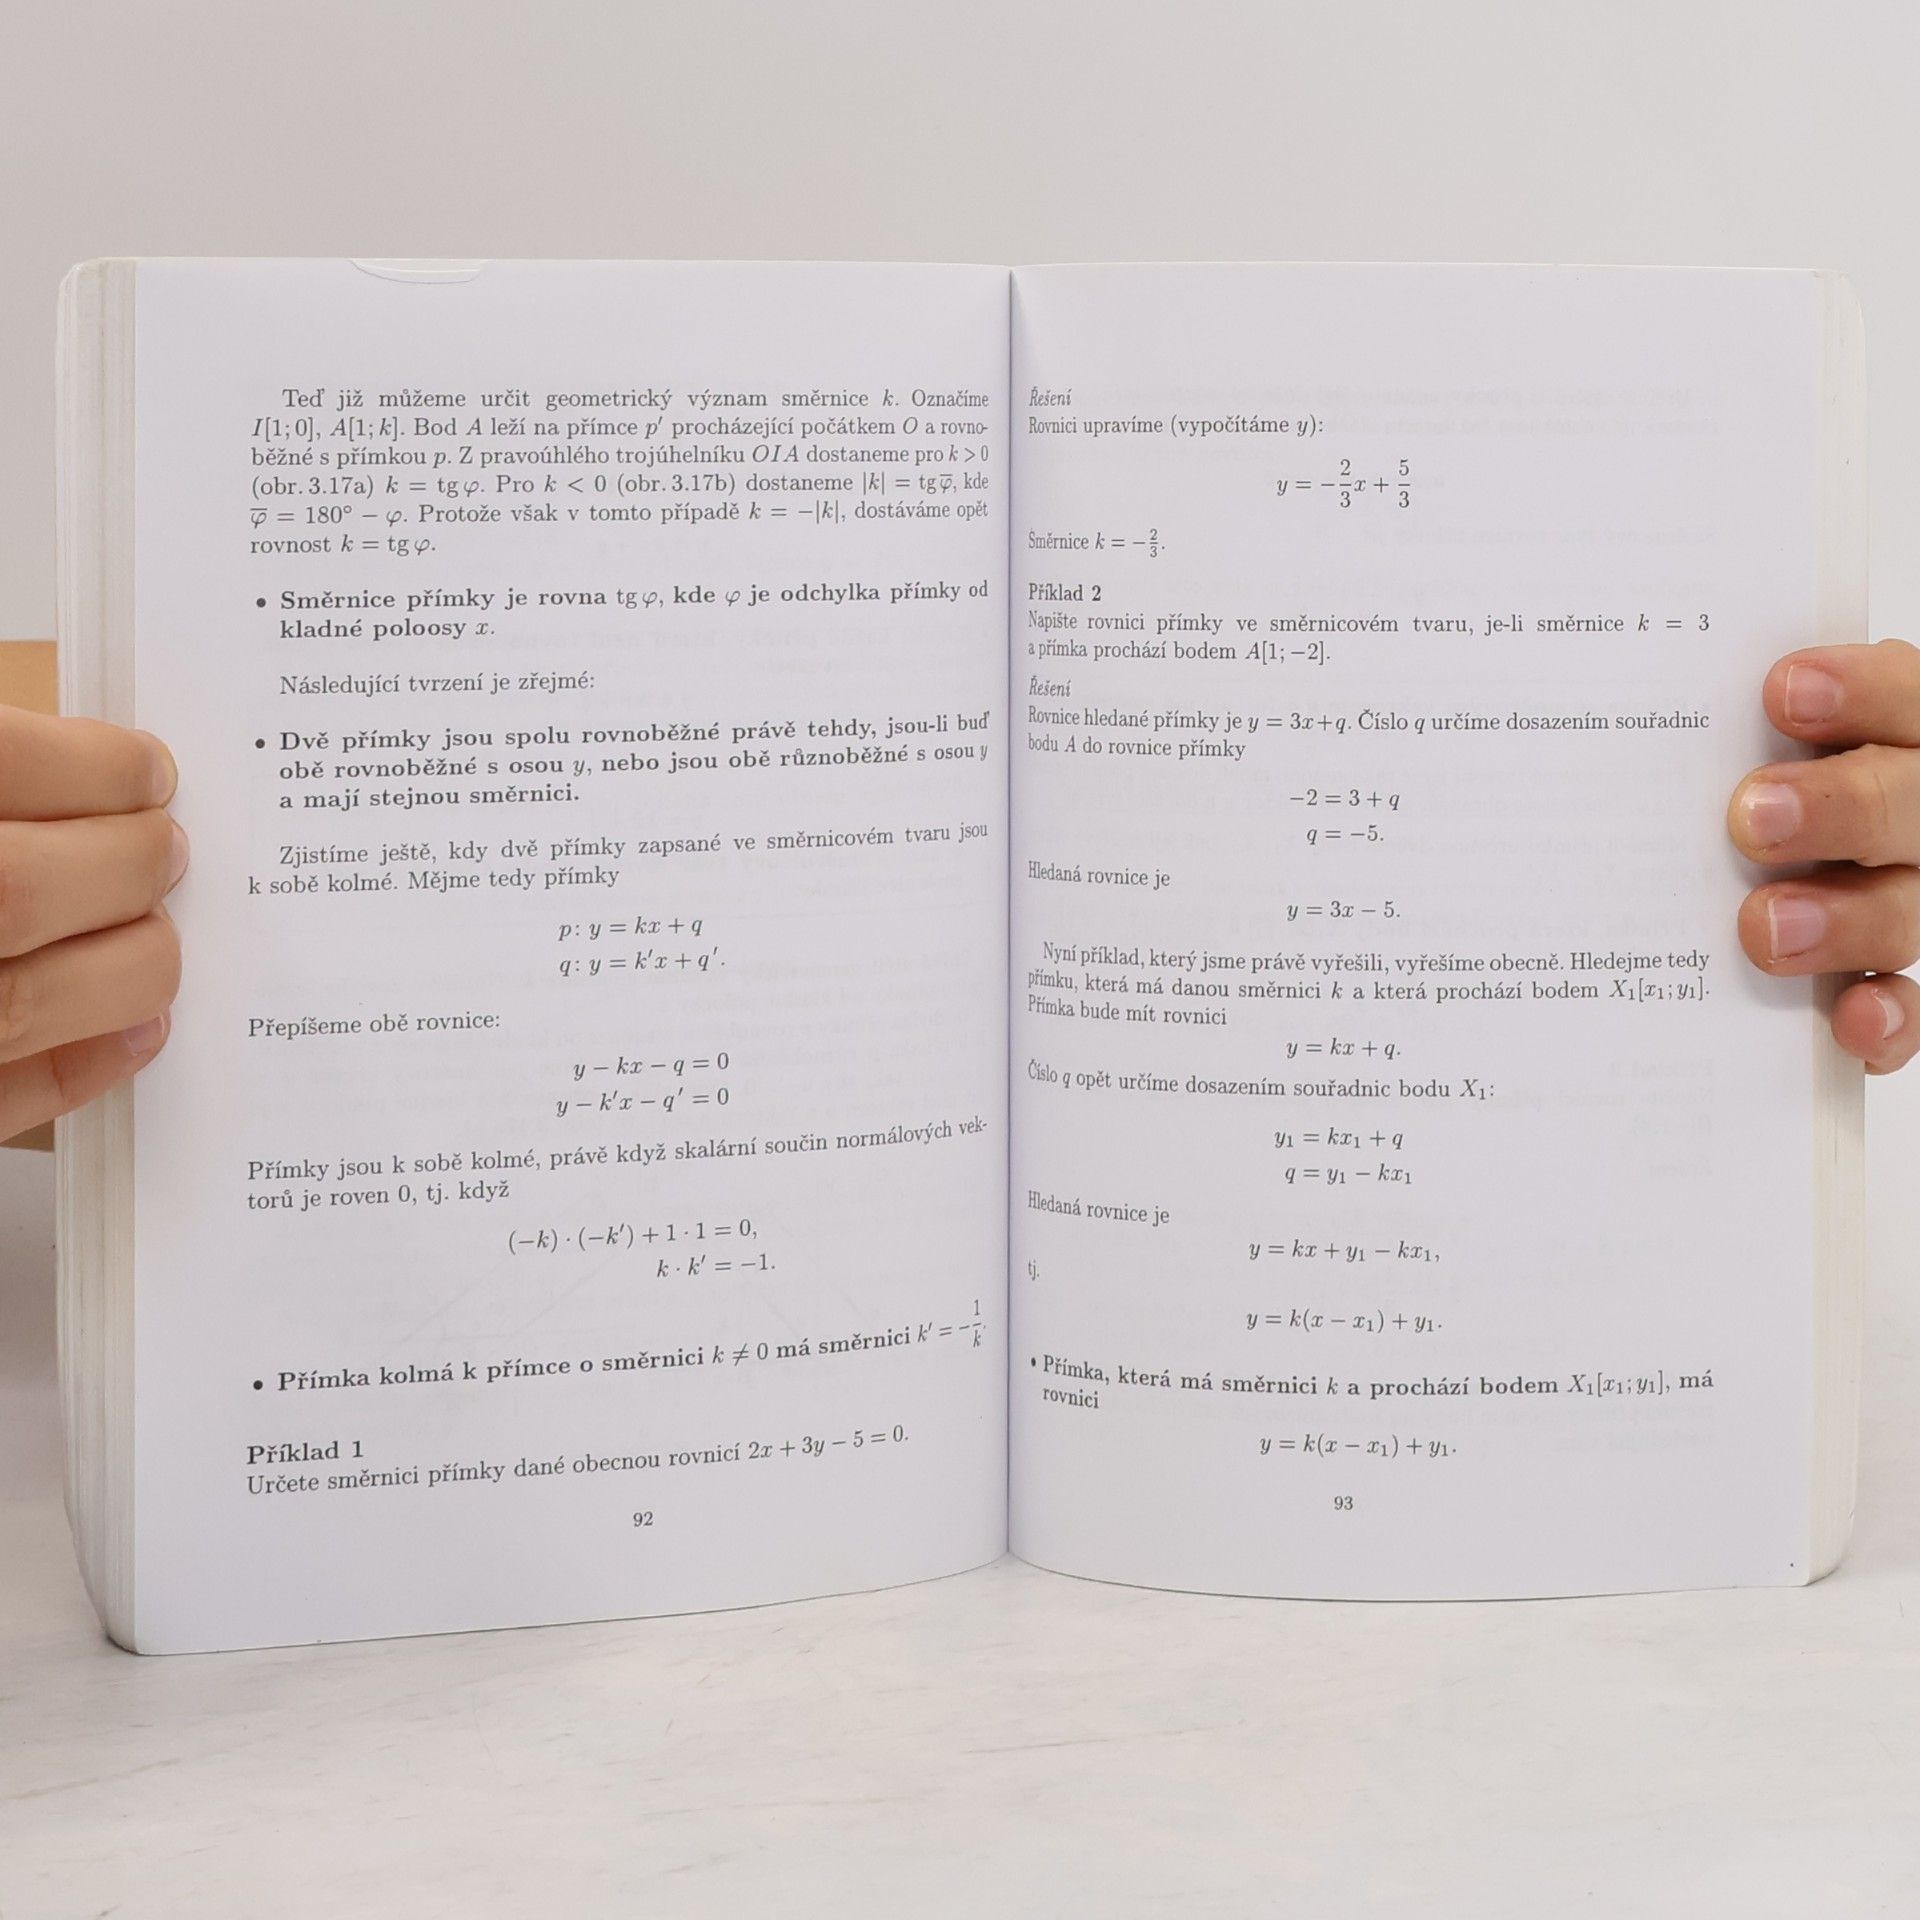 Teď již můžeme určit geometrický význam směrnice k. Označíme
I[1; 0], A[1; k]. Bod A leží na přímce p′ procházející počátkem O a rovno-
běžné s přímkou p. Z pravoúhlého trojúhelníku OIA dostaneme pro k > 0
(obr. 3.17a) k = tg φ. Pro k < 0 (obr. 3.17b) dostaneme |k| = tg φ̅, kde
φ̅ = 180° − φ. Protože však v tomto případě k = −|k|, dostáváme opět
rovnost k = tg φ.
• Směrnice přímky je rovna tg φ, kde φ je odchylka přímky od
kladné poloosy x.
Následující tvrzení je zřejmé:
• Dvě přímky jsou spolu rovnoběžné právě tehdy, jsou-li buď
obě rovnoběžné s osou y, nebo jsou obě různoběžné s osou y
a mají stejnou směrnici.
Zjistíme ještě, kdy dvě přímky zapsané ve směrnicovém tvaru jsou
k sobě kolmé. Mějme tedy přímky
p: y = kx + q
q: y = k′x + q′.
Přepíšeme obě rovnice:
y − kx − q = 0
y − k′x − q′ = 0
Přímky jsou k sobě kolmé, právě když skalární součin normálových vek-
torů je roven 0, tj. když
(−k) · (−k′) + 1 · 1 = 0,
k · k′ = −1.
• Přímka kolmá k přímce o směrnici k ≠ 0 má směrnici k′ = −1/k.
Příklad 1
Určete směrnici přímky dané obecnou rovnicí 2x + 3y − 5 = 0.
92
Řešení
Rovnici upravíme (vypočítáme y):
y = −2/3 x + 5/3
Směrnice k = −2/3.
Příklad 2
Napište rovnici přímky ve směrnicovém tvaru, je-li směrnice k = 3
a přímka prochází bodem A[1; −2].
Řešení
Rovnice hledané přímky je y = 3x+q. Číslo q určíme dosazením souřadnic
bodu A do rovnice přímky
−2 = 3 + q
q = −5.
Hledaná rovnice je
y = 3x − 5.
Nyní příklad, který jsme právě vyřešili, vyřešíme obecně. Hledejme tedy
přímku, která má danou směrnici k a která prochází bodem X₁[x₁; y₁].
Přímka bude mít rovnici
y = kx + q.
Číslo q opět určíme dosazením souřadnic bodu X₁:
y₁ = kx₁ + q
q = y₁ − kx₁
Hledaná rovnice je
y = kx + y₁ − kx₁,
tj.
y = k(x − x₁) + y₁.
• Přímka, která má směrnici k a prochází bodem X₁[x₁; y₁], má
rovnici
y = k(x − x₁) + y₁.
93